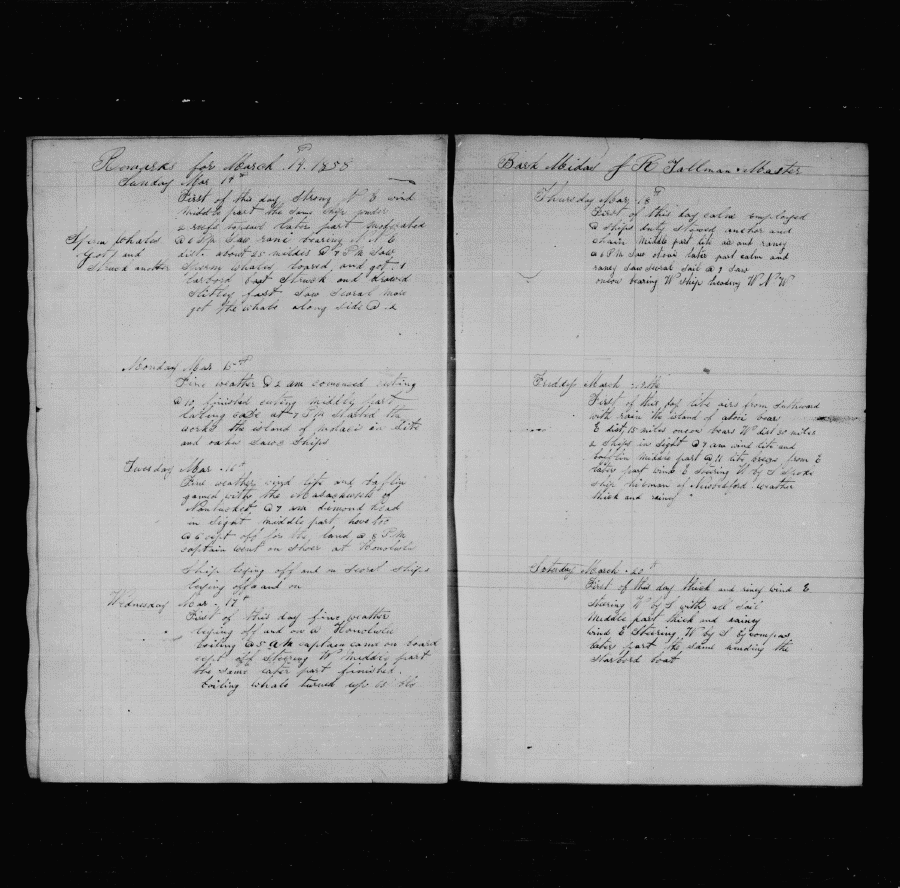 Remarks for March 14. 1858
Sunday Mar 14th
First of this day Strong N E wind
middle part the same ship under
2 reefs topsail later part moderated
Sperm Whales
Got 1 and
Struck another
@ 6 PM Saw bearing N N E
dist. about 25 miles @ 7 PM Saw
Sperm whales loared and got 1
Larbord boat Struck and
fast Saw Several more
got the whale along side @ 2
Monday Mar 15th
Fine weather @ 2 am comenced cuting
@ 10 finished cuting middle part
at 7 PM Started the
works the island of in Site
and oahu Saw 2 Ships
Tuesday Mar 16th
Fine weather wind lite and baflin
gamed with the Massachusets of
Nantucket @ 7 am diamond head
in Sight middle part hove too
@ 6 cept off for the land @ 8 PM
captain went on Shoer at Honolulu
Ship lying off and on Several Ships
lying off and on
Wednesday Mar 17th
First of this day fine weather
lying off and on @ Honolulu
boiling @ 5 am captain came on board
cept off Steering W Middle part
the same later part finished
boiling whale turned up 15 bbls
Bark Midas of R Tallman Master
Thursday Mar 18
First of this day calm employed
@ ships duty Stowed anchor and
chain Middle part lite air and raney
@ 6 PM Saw later part calm and
raney Saw several Sail @ 7 Saw
bearing W Ship heading W N W
Friddy March 19th
First of this day lite airs from Suthward
with rain the island of bears
E dist 15 miles bears W dist 30 miles
2 Ships in sight @ 7 am wind lite and
bafflin middle part @ 11 lite breas from E
later part wind E Steering W by S Spoke
Ship of Newbedford weather
thick and rainey
Saterday March 20th
First of this day thick and riney wind E
Steering W by S with all Sail
Middle part thick and rainey
wind E Steering W by S by compas
later part the same the
Starbord boat